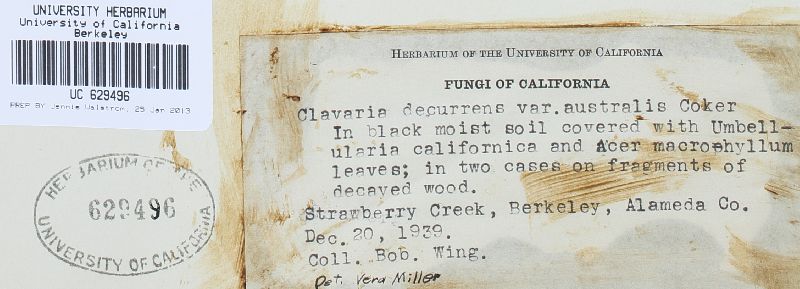 UNIVERSITY HERBARIUM
University of California
Berkeley
UC 629496
PREP BY Jennie Walstrom, 25 Jan 2013
HERBARIUM OF THE
629496
UNIVERSITY OF CALIFORNIA
HERBARIUM OF THE UNIVERSITY OF CALIFORNIA
FUNGI OF CALIFORNIA
Clavaria decurrens var. australis Coker
In black moist soil covered with Umbell-
ularia californica and Acer macrophyllum
leaves; in two cases on fragments of
decayed wood.
Strawberry Creek, Berkeley, Alameda Co.
Dec. 20, 1939.
Coll. Bob. Wing.
Det. Vera Miller